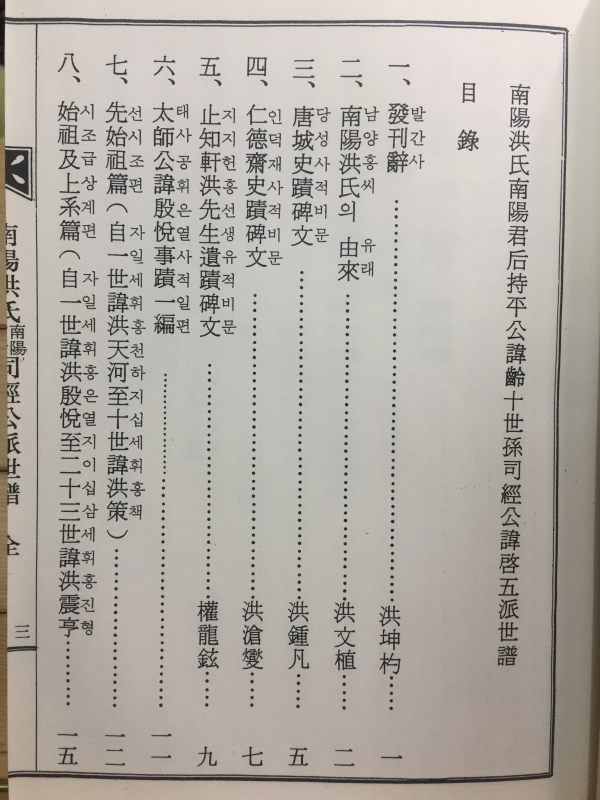 南陽洪氏南陽君后持平公諱齡十世孫司經公諱啓五派世譜
目錄
一、發刊辭 洪坤杓 一
발간사
二、南陽洪氏의 由來 洪文植 二
남양홍씨 유래
三、唐城史蹟碑文 洪鍾凡 五
당성사적비문
四、仁德齋史蹟碑文 洪滄燮 七
인덕재사적비문
五、止知軒洪先生遺蹟碑文 權龍鉉 九
지지헌홍선생유적비문
六、太師公諱殷悅事蹟一編 一一
태사공휘은열사적일편
七、先始祖篇(自一世諱洪天河至十世諱洪策) 一二
선시조편 자일세휘홍천하지십세휘홍책
八、始祖及上系篇(自一世諱洪殷悅至二十三世諱洪震亨 一五
시조급상계편 자일세휘홍은열지이십삼세휘홍진형
南陽洪氏南陽司經公派世譜 全
三